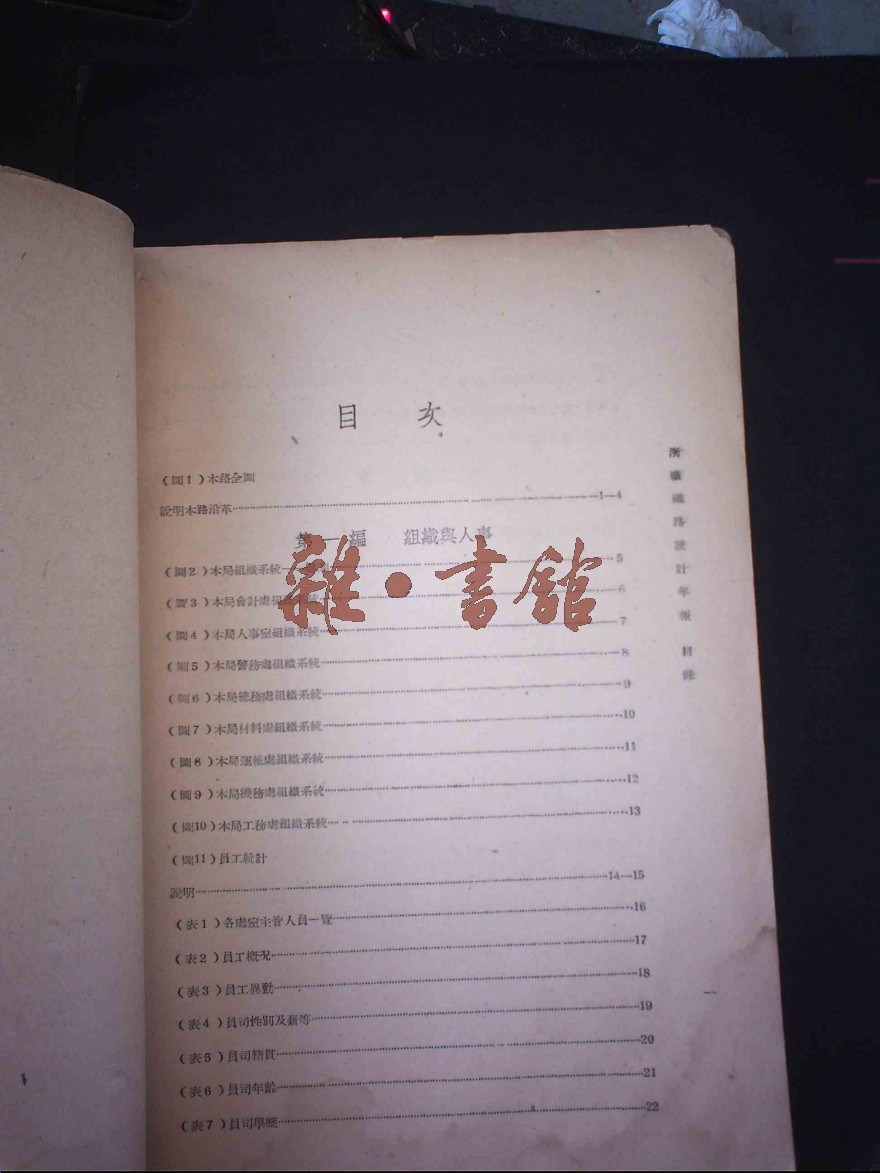 目 次
(圖1)本路全圖
說明本路沿革 1—4
第一編 組織與人事
(圖2)本局組織系統一 5
(圖3)本局會計處組織系統 6
(圖4)本局人事室組織系統 7
(圖5)本局警務處組織系統 8
(圖6)本局總務處組織系統 9
(圖7)本局材料處組織系統 10
(圖8)本局運輸處組織系統 11
(圖9)本局機務處組織系統 12
(圖10)本局工務處組織系統 13
(圖11)員工統計
說明 14—15
(表1)各處室主管人員一覽 16
(表2)員工概況 17
(表3)員工異動 18
(表4)員司性別及薪等 19
(表5)員司籍貫 20
(表6)員司年齡 21
(表7)員司學歷 22
鐵路統計年報 目錄
雜·書館